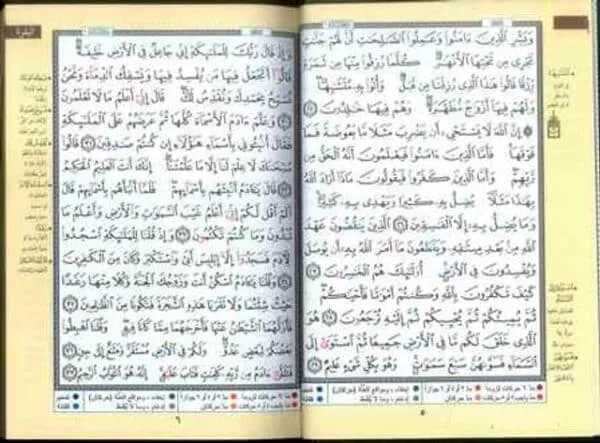 وَبَشِّرِ الَّذِينَ ءَامَنُوا وَعَمِلُوا الصَّٰلِحَٰتِ أَنَّ لَهُمْ جَنَّٰتٍ
تَجْرِى مِن تَحْتِهَا الْأَنْهَٰرُ كُلَّمَا رُزِقُوا مِنْهَا مِن ثَمَرَةٍ
رِّزْقًا قَالُوا هَٰذَا الَّذِى رُزِقْنَا مِن قَبْلُ وَأُتُوا بِهِ مُتَشَٰبِهًا
وَلَهُمْ فِيهَا أَزْوَٰجٌ مُّطَهَّرَةٌ وَهُمْ فِيهَا خَٰلِدُونَ ٢٥
إِنَّ اللَّهَ لَا يَسْتَحْىِ أَن يَضْرِبَ مَثَلًا مَّا بَعُوضَةً فَمَا
فَوْقَهَا فَأَمَّا الَّذِينَ ءَامَنُوا فَيَعْلَمُونَ أَنَّهُ الْحَقُّ مِن
رَّبِّهِمْ وَأَمَّا الَّذِينَ كَفَرُوا فَيَقُولُونَ مَاذَا أَرَادَ اللَّهُ
بِهَٰذَا مَثَلًا يُضِلُّ بِهِ كَثِيرًا وَيَهْدِى بِهِ كَثِيرًا
وَمَا يُضِلُّ بِهِ إِلَّا الْفَٰسِقِينَ ٢٦ الَّذِينَ يَنقُضُونَ عَهْدَ
اللَّهِ مِن بَعْدِ مِيثَٰقِهِ وَيَقْطَعُونَ مَا أَمَرَ اللَّهُ بِهِ أَن يُوصَلَ
وَيُفْسِدُونَ فِى الْأَرْضِ أُولَٰئِكَ هُمُ الْخَٰسِرُونَ ٢٧
كَيْفَ تَكْفُرُونَ بِاللَّهِ وَكُنتُمْ أَمْوَٰتًا فَأَحْيَٰكُمْ
ثُمَّ يُمِيتُكُمْ ثُمَّ يُحْيِيكُمْ ثُمَّ إِلَيْهِ تُرْجَعُونَ ٢٨ هُوَ
الَّذِى خَلَقَ لَكُم مَّا فِى الْأَرْضِ جَمِيعًا ثُمَّ اسْتَوَىٰ إِلَى
السَّمَاءِ فَسَوَّىٰهُنَّ سَبْعَ سَمَٰوَٰتٍ وَهُوَ بِكُلِّ شَىْءٍ عَلِيمٌ ٢٩
٥
وَإِذْ قَالَ رَبُّكَ لِلْمَلَٰئِكَةِ إِنِّى جَاعِلٌ فِى الْأَرْضِ خَلِيفَةً
قَالُوا أَتَجْعَلُ فِيهَا مَن يُفْسِدُ فِيهَا وَيَسْفِكُ الدِّمَاءَ وَنَحْنُ
نُسَبِّحُ بِحَمْدِكَ وَنُقَدِّسُ لَكَ قَالَ إِنِّى أَعْلَمُ مَا لَا تَعْلَمُونَ
٣٠ وَعَلَّمَ ءَادَمَ الْأَسْمَاءَ كُلَّهَا ثُمَّ عَرَضَهُمْ عَلَى الْمَلَٰئِكَةِ
فَقَالَ أَنبِـُٔونِى بِأَسْمَاءِ هَٰؤُلَاءِ إِن كُنتُمْ صَٰدِقِينَ ٣١ قَالُوا
سُبْحَٰنَكَ لَا عِلْمَ لَنَا إِلَّا مَا عَلَّمْتَنَا إِنَّكَ أَنتَ الْعَلِيمُ الْحَكِيمُ
٣٢ قَالَ يَٰـَٔادَمُ أَنبِئْهُم بِأَسْمَائِهِمْ فَلَمَّا أَنبَأَهُم بِأَسْمَائِهِمْ قَالَ
أَلَمْ أَقُل لَّكُمْ إِنِّى أَعْلَمُ غَيْبَ السَّمَٰوَٰتِ وَالْأَرْضِ وَأَعْلَمُ مَا
تُبْدُونَ وَمَا كُنتُمْ تَكْتُمُونَ ٣٣ وَإِذْ قُلْنَا لِلْمَلَٰئِكَةِ اسْجُدُوا
لِـَٔادَمَ فَسَجَدُوا إِلَّا إِبْلِيسَ أَبَىٰ وَاسْتَكْبَرَ وَكَانَ مِنَ الْكَٰفِرِينَ
٣٤ وَقُلْنَا يَٰـَٔادَمُ اسْكُنْ أَنتَ وَزَوْجُكَ الْجَنَّةَ وَكُلَا مِنْهَا رَغَدًا
حَيْثُ شِئْتُمَا وَلَا تَقْرَبَا هَٰذِهِ الشَّجَرَةَ فَتَكُونَا مِنَ الظَّٰلِمِينَ ٣٥
فَأَزَلَّهُمَا الشَّيْطَٰنُ عَنْهَا فَأَخْرَجَهُمَا مِمَّا كَانَا فِيهِ وَقُلْنَا اهْبِطُوا
بَعْضُكُمْ لِبَعْضٍ عَدُوٌّ وَلَكُمْ فِى الْأَرْضِ مُسْتَقَرٌّ وَمَتَٰعٌ إِلَىٰ حِينٍ ٣٦
فَتَلَقَّىٰ ءَادَمُ مِن رَّبِّهِ كَلِمَٰتٍ فَتَابَ عَلَيْهِ إِنَّهُ هُوَ التَّوَّابُ الرَّحِيمُ ٣٧
٦